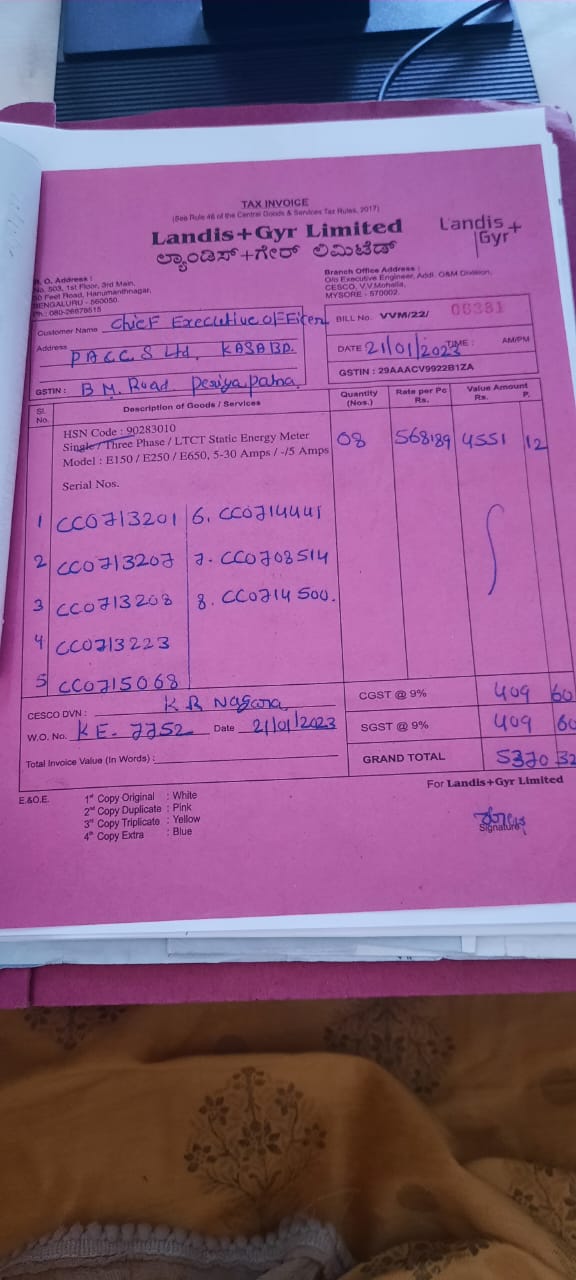 TAX INVOICE
(See Rule 46 of the Central Goods & Services Tax Rules, 2017)
Landis+Gyr Limited
ಲ್ಯಾಂಡಿಸ್+ಗೇರ್ ಲಿಮಿಟೆಡ್
Landis+
Gyr
R. O. Address :
No. 503, 1st Floor, 3rd Main,
50 Feet Road, Hanumanthnagar,
BENGALURU - 560050.
Ph.: 080-26678615
Branch Office Address :
O/o Executive Engineer, Addl. O&M Division,
CESCO, V.V.Mohalla,
MYSORE - 570002.
Customer Name Chief Executive of Eicer
Address PACCS Ltd, KASABA
GSTIN : B M. Road Periyapatna
BILL No. VVM/22/ 06381
DATE 21/01/2023 TIME : AM/PM
GSTIN : 29AAACV9922B1ZA
Sl. No. Description of Goods / Services Quantity (Nos.) Rate per Pc Rs. Value Amount Rs. P.
HSN Code : 90283010
Single / Three Phase / LTCT Static Energy Meter 08 568.89 4551 12
Model : E150 / E250 / E650, 5-30 Amps / -/5 Amps
Serial Nos.
1 CC0713201 6. CC0714441
2 CC0713207 7. CC0708514
3 CC0713208 8. CC0714500.
4 CC0713223
5 CC0715068
CESCO DVN : K R Nagara
CGST @ 9% 409 60
W.O. No. KE-7752 Date 21/01/2023
SGST @ 9% 409 60
Total Invoice Value (In Words) :
GRAND TOTAL 5370 32
E.&O.E.
1st Copy Original : White
2nd Copy Duplicate : Pink
3rd Copy Triplicate : Yellow
4th Copy Extra : Blue
For Landis+Gyr Limited
Signature